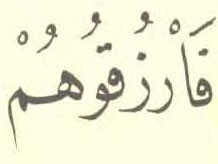 فَٱرْزُقُوهُمْ